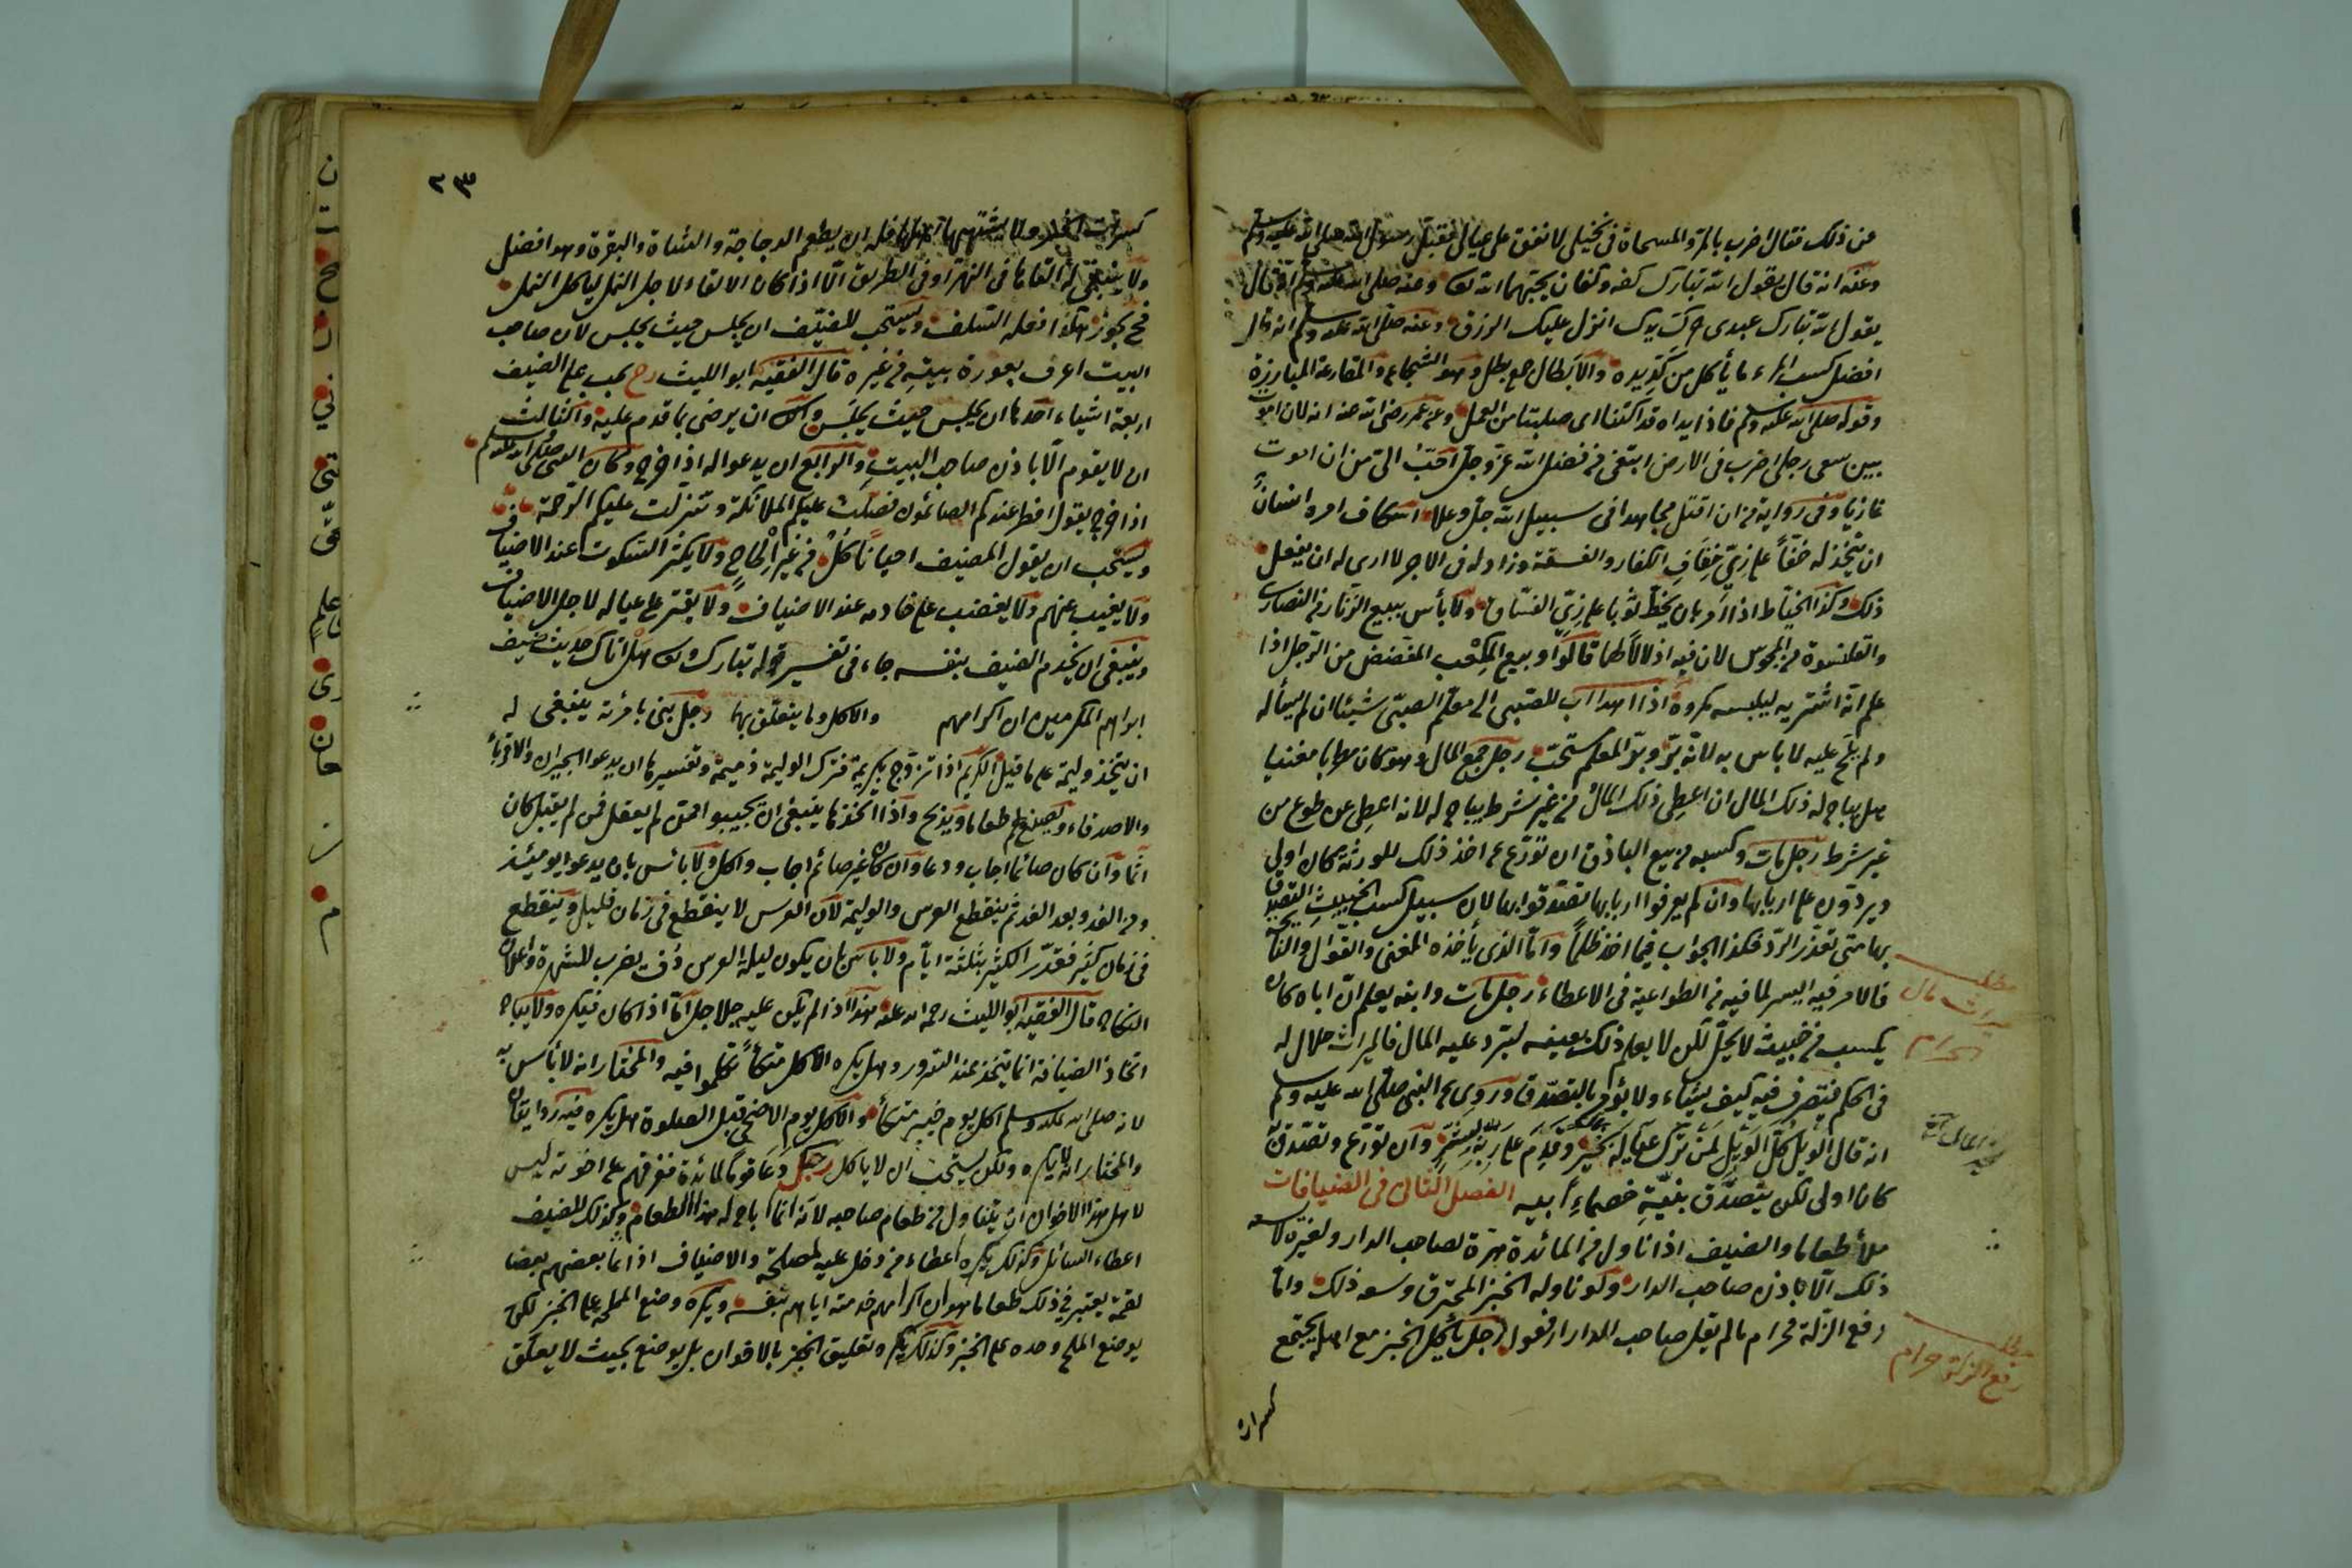 عن ذلك فقال اضرب بالمر والمسحاة فى نخيلى لانفق على عيالى فقبل رسول الله صلى الله عليه وسلم
وعنه انه قال يقول الله تبارك كفه وكفان يحبهما الله تعا وعنه صلى الله عليه وسلم انه قال
يقول الله تبارك عبدى حرك يدك انزل عليك الرزق وعنه صلى الله عليه وسلم انه قال
افضل كسب المرء ما يأكل من كد يده والابطال جمع بطل وهو الشجاع والمقارعة المبارزة
وقوله صلى الله عليه وسلم فاذا يداه قد اكتنا اى صلبتا من العمل وعن عمر رضى الله عنه انه لان اموت
بين سعى رجلى اضرب فى الارض ابتغى من فضل الله عز وجل احب الى من ان اموت
غازيا وفى رواية من ان اقتل مجاهدا فى سبيل الله جل وعلا اسكاف امره انسان
ان يتخذ له خفا على زى خفاف الكفار والفسقة وزاد له فى الاجر لا ارى له ان يفعل
ذلك وكذا الخياط اذا امر بان يخط ثوبا على زى الفساق ولا بأس ببيع الزنار من النصارى
والقلنسوة من المجوس لان فيه اذلالا لهما قالوا وبيع المكعب المفضض من الرجل اذا
علم انه اشتريه ليلبسه مكروه اذا اهدى اب الصبى الى معلم الصبى شيئا ان لم يسأله
ولم يلح عليه لا باس به لانه بر وبر المعلم مستحب رجل جمع المال وهو كان مطربا مغنيا
هل يباح له ذلك المال ان اعطى ذلك المال من غير شرط يباح له لانه اعطى عن طوع من
غير شرط رجل مات وكسبه من بيع الباذق ان تورع عن اخذ ذلك للورثة كان اولى
ويردون على اربابها وان لم يعرفوا اربابها تصدقوا بها لان سبيل كسب الخبيث التصدق
بها متى تعذر الرد فكذا الجواب فيما اخذ ظلما واما الذى يأخذه المغنى والقوال والنائحة
فالامر فيه ايسر لما فيه من الطواعية فى الاعطاء رجل مات وابنه يعلم ان اباه كان
يكسب من خبيث لا يحل لكن لا يعلم ذلك بعينه ليرد عليه المال فالميراث حلال له
فى الحكم فيتصرف فيه كيف يشاء ولا يؤمر بالتصدق وروى عن النبى صلى الله عليه وسلم
انه قال الويل كل الويل لمن ترك عياله بخير وقدم على ربه بشر وان تورع وتصدق
كان اولى لكن يتصدق بنية خصماء ابيه الفصل الثانى فى الضيافات
ملأ طعاما والضيف اذا ناول من المائدة هرة لصاحب الدار ولغيره لا يسعه
ذلك الا باذن صاحب الدار ولو ناوله الخبز المحترق وسعه ذلك واما
رفع الزلة فحرام ما لم يقل صاحب الدار ارفعوا رجل يأكل الخبز مع اهله يجتمع
كسرات
مطلب
ميراث مال
الحرام
مطلب
رفع الزلة حرام
٢٣
كسرات الخبز ولا يشتهيها اهلها فله ان يطعم الدجاجة والشاة والبقرة وهو افضل
ولا ينبغى له القاءها فى النهر او فى الطريق الا اذا كان الالقاء لاجل النمل ليأكل النمل
فح يجوز هكذا فعله السلف ويستحب للضيف ان يجلس حيث يجلس لان صاحب
البيت اعرف بعورة بيته من غيره قال الفقيه ابو الليث رح يجب على الضيف
اربعة اشياء احدها ان يجلس حيث يجلس والثانى ان يرضى بما قدم عليه والثالث
ان لا يقوم الا باذن صاحب البيت والرابع ان يدعو له اذا خرج وكان النبى صلى الله عليه وسلم
اذا خرج يقول افطر عندكم الصائمون وصلت عليكم الملائكة وتنزلت عليكم الرحمة
ويستحب ان يقول المضيف احيانا كل من غير الحاح ولا يكثر السكوت عند الاضياف
ولا يغيب عنهم ولا يغضب على خادمه عند الاضياف ولا يقتر على عياله لاجل الاضياف
وينبغى ان يخدم الضيف بنفسه جاء فى تفسير قوله تبارك وتعا هل اتاك حديث ضيف
ابراهيم المكرمين ان اكرامهم والاكل وما يتعلق بها رجل بنى بامرأته ينبغى له
ان يتخذ وليمة على ما قيل الكريم اذا تزوج بكريمة فترك الوليمة ذميمة وتفسيرها ان يدعو الجيران والاقرباء
والاصدقاء ويصنع لهم طعاما ويذبح واذا اتخذ ما ينبغى ان يجيبوا فمن لم يفعل فمن لم يقبل كان
آثما وان كان صائما اجاب ودعا وان كان غير صائم اجاب واكل ولا بأس بان يدعو ايومئذ
ومن الغد وبعد الغد ثم ينقطع العرس والوليمة لان العرس لا ينقطع فى زمان قليل وينقطع
فى زمان كثير فقدر الكثير بثلثة ايام ولا بأس بان يكون ليلة العرس دف يضرب للشهرة واعلان
النكاح قال الفقيه ابو الليث رحمه الله عليه هذا اذا لم يكن عليه جلاجل اما اذا كان فيكره ولا يباح
اتخاذ الضيافة انما يتخذ عند السرور وهل يكره الاكل متكئا تكلموا فيه والمختار انه لا بأس به
لانه صلى الله عليه وسلم اكل يوم خيبر متكئا والاكل يوم الاضحى قبل الصلوة هل يكره فيه روايتان
والمختار انه لا يكره ولكن يستحب ان لا يأكل رجل دعا قوما لمائدة ففرقهم على اخونة ليس
لاهل هذا الاخوان ان يتناول من طعام صاحبه لانه انما اباح له هذا الطعام وكذلك للضيف
اعطاء السائل وكذلك يكره اعطاء من دخل عليه لمصلحة والاضياف اذا بعضهم بعضا
لقمة يعتبر فى ذلك طعاما هو ان اكرامهم خدمته اياهم بنفسه ويكره وضع المملحة على الخبز لكن
يوضع الملح وحده على الخبز وكذلك يكره تعليق الخبز بالاخوان بل يوضع بحيث لا يعلق